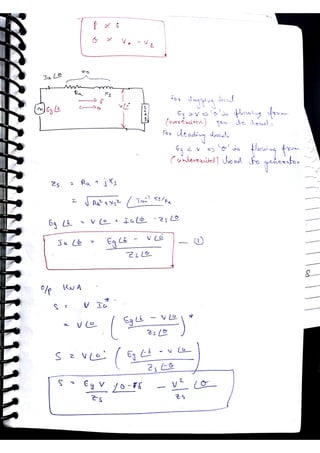 P ∝ δ
Q ∝ V₁ - V₂
Ia∠Φ
Zs
Ra
Xs
Eg∠δ
V∠0°
For lagging load
Eg > V ⇒ 'Q' is flowing from
(overexcited) gen to load.
For leading load
Eg < V ⇒ 'Q' is flowing from
(underexcited) load to generator
Zs = Ra + jXs
= √Ra² + Xs² ∠Tan⁻¹ Xs/Ra
Eg∠δ = V∠0 + Ia∠Φ · Zs∠θ
Ia∠Φ = Eg∠δ - V∠0 / Zs∠θ — (1)
O/p KVA
S = V Ia*
= V∠0 ( Eg∠δ - V∠0 / Zs∠θ )*
S = V∠0° ( Eg∠-δ - V∠0 / Zs∠-θ )
S = Eg V / Zs ∠θ-δ - V² / Zs ∠θ